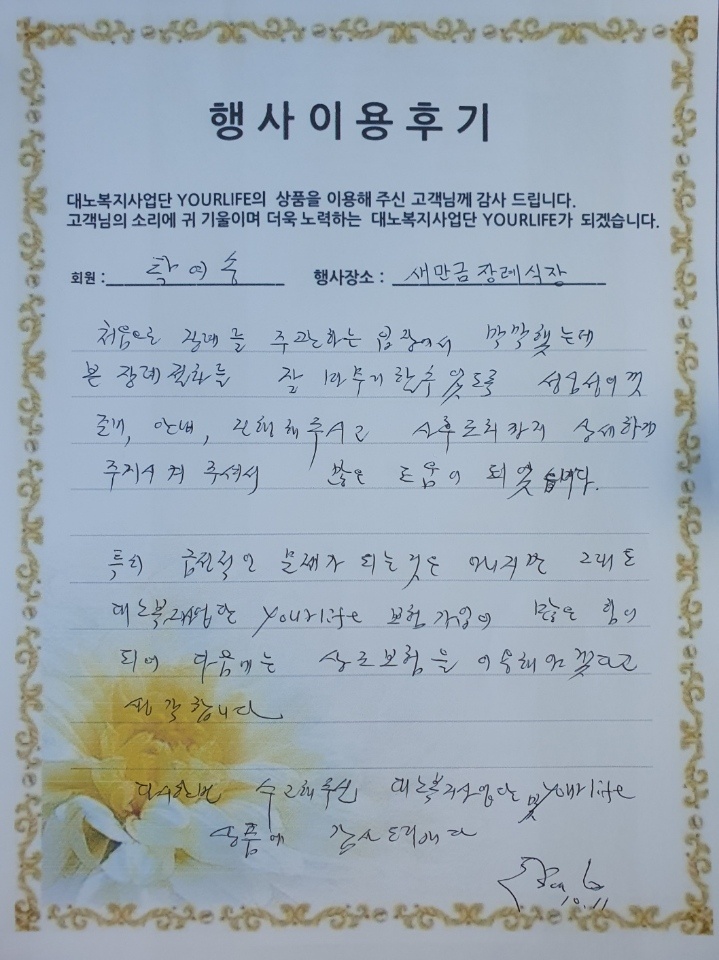 행사이용후기
대노복지사업단 YOURLIFE의 상품을 이용해 주신 고객님께 감사 드립니다.
고객님의 소리에 귀 기울이며 더욱 노력하는 대노복지사업단 YOURLIFE가 되겠습니다.
회원 : 탁이수 행사장소 : 새만금장례식장
처음으로 장례를 주관하는 입장에서 막막했는데
본 장례절차를 잘 마무리 할수 있도록 성심성의껏
소개, 안내, 진행해 주시고 사후 까지 상세하게
주지시켜 주셔서 많은 도움이 되었습니다.
특히 금전적인 문제가 되는것은 그래도
대노복지사업단 yourlife 보험가입이 많은 힘이
되어 다음에는 상조보험을 이용해야 겠다고
생각합니다
다시한번 수고해주신 대노복지사업단 및 yourlife
상품에 감사드립니다
10.11